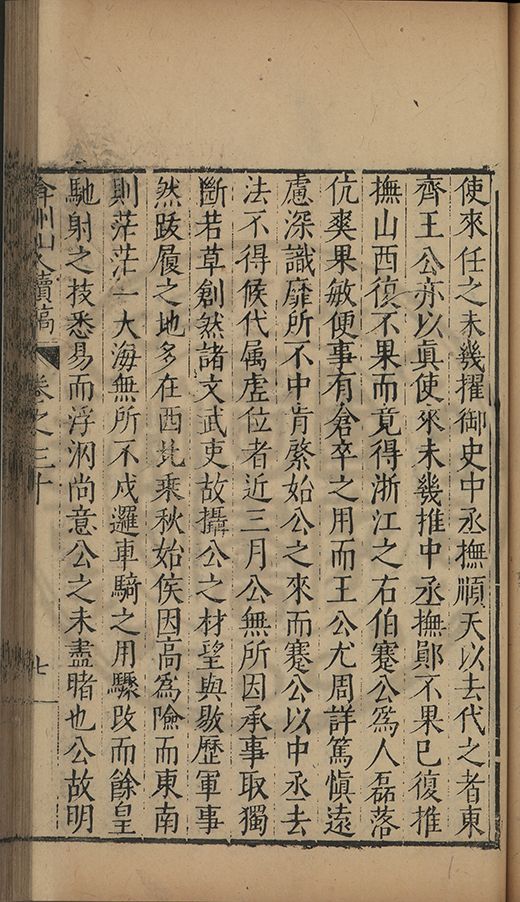 使來任之未幾擢御史中丞撫順天以去代之者東
齊王公亦以眞使來未幾推中丞撫鄖不果已復推
撫山西復不果而竟得浙江之右伯蹇公爲人磊落
伉爽果敏便事有倉卒之用而王公尤周詳篤慎遠
慮深識靡所不中肯綮始公之來而蹇公以中丞去
法不得候代属虛位者近三月公無所因承事取獨
斷若草創然諸文武吏故攝公之材望與敭歷軍事
然跋履之地多在西北乘秋始俟因高爲險而東南
則茫茫一大海無所不戍邏車騎之用驟改而艅皇
馳射之技悉易而浮泅尚意公之未盡睹也公故明
弇州山人續稿 卷之三十 七